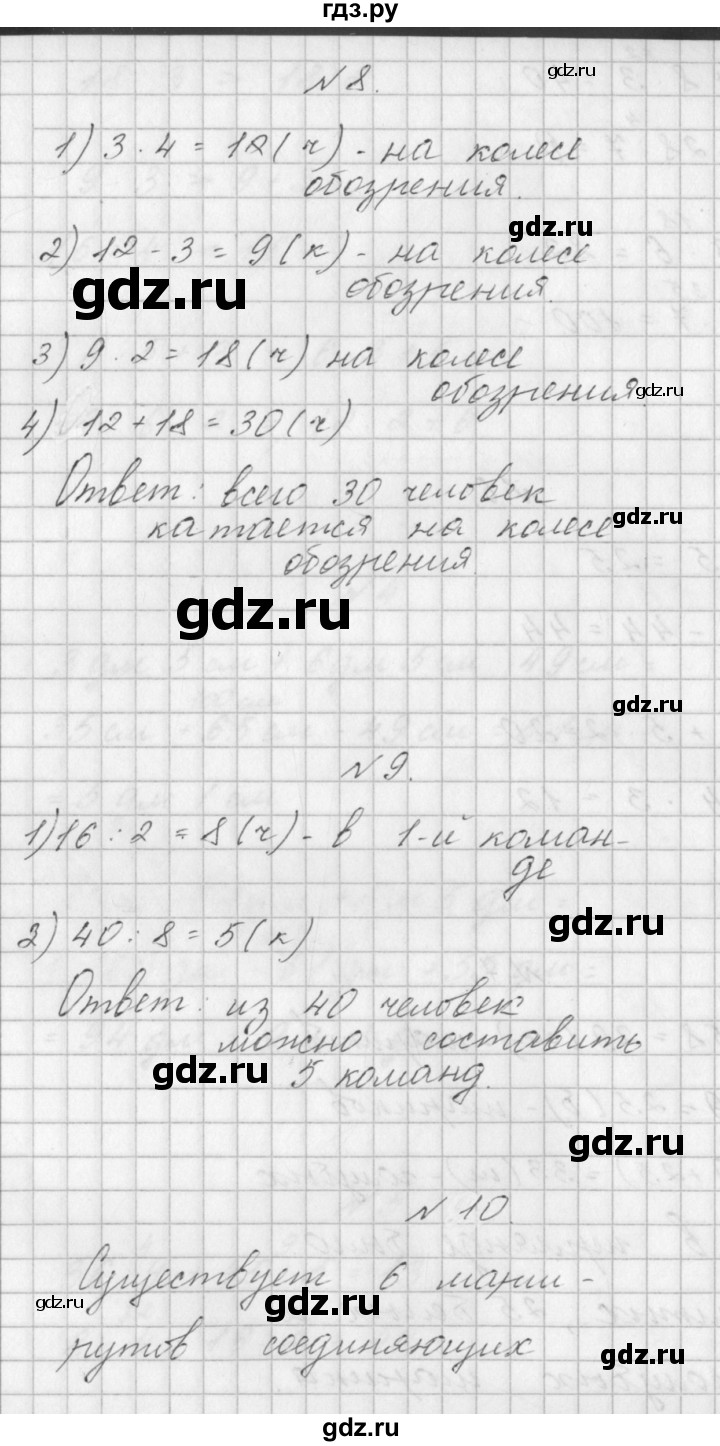 гдз.ру
№ 8.
gdz.ru
1) 3 · 4 = 12 (ч) - на колесе
обозрения.
gdz.ru
2) 12 - 3 = 9 (к) - на колесе
gdz.ru
обозрения.
3) 9 · 2 = 18 (ч) на колесе
обозрения.
gdz.ru
4) 12 + 18 = 30 (ч)
Ответ: всего 30 человек
катается на колесе
gdz.ru
обозрения.
gdz.ru
gdz.ru
№ 9.
1) 16 : 2 = 8 (ч) - в 1-й коман-
де
gdz.ru
2) 40 : 8 = 5 (к)
Ответ: из 40 человек
можно составить
gdz.ru
5 команд.
gdz.ru
№ 10.
Существует 6 марш-
gdz.ru
gdz.ru
рутов соединяющих
gdz.ru
gdz.ru